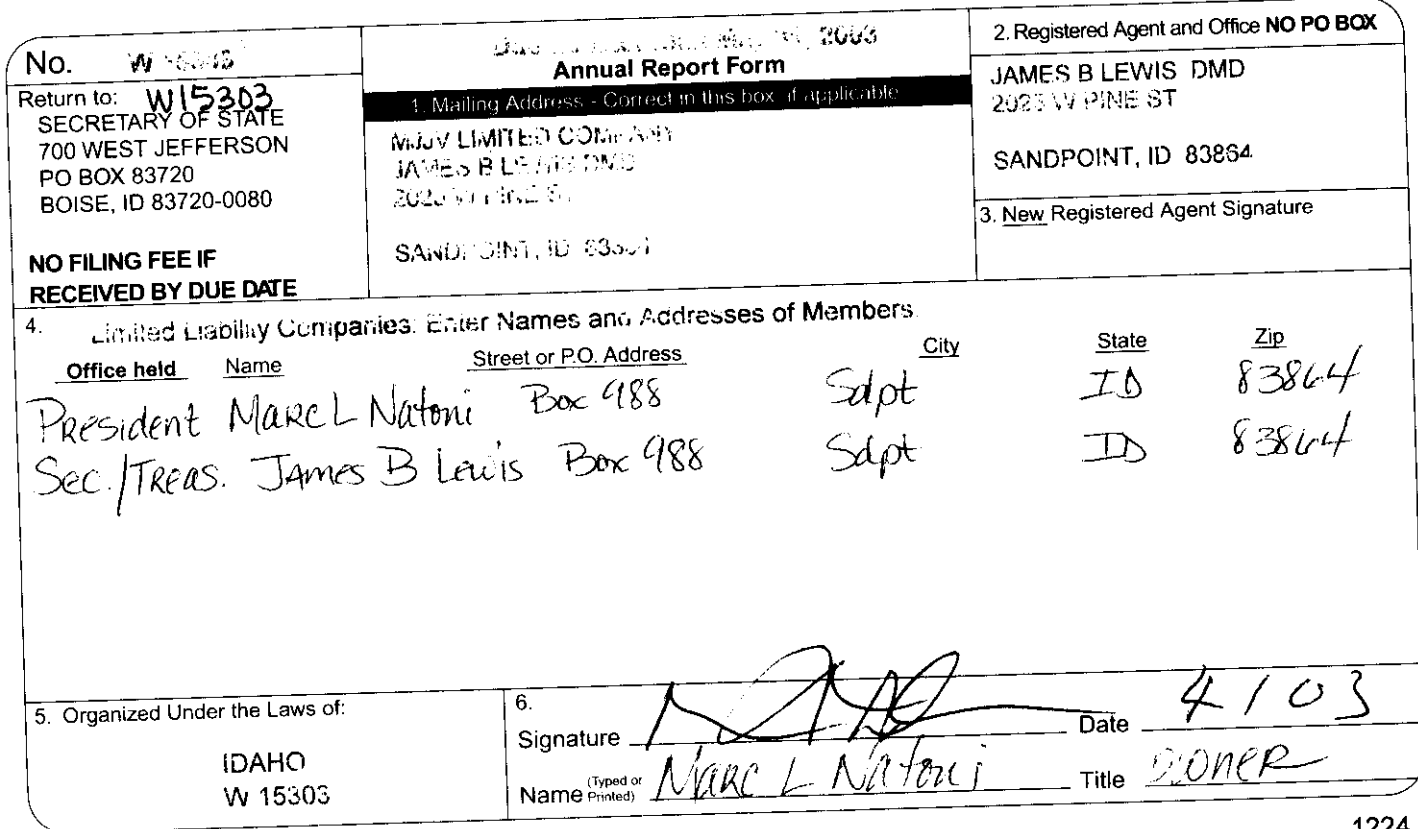 No. W
Return to: W15303
SECRETARY OF STATE
700 WEST JEFFERSON
PO BOX 83720
BOISE, ID 83720-0080
NO FILING FEE IF
RECEIVED BY DUE DATE
2003
Annual Report Form
1. Mailing Address - Correct in this box if applicable
LIMITED COMPANY
JAMES B LEWIS DMD
SANDPOINT, ID
2. Registered Agent and Office NO PO BOX
JAMES B LEWIS DMD
2023 W PINE ST
SANDPOINT, ID 83864
3. New Registered Agent Signature
4. Limited Liability Companies: Enter Names and Addresses of Members.
Office held Name Street or P.O. Address City State Zip
President Marc L Natoni Box 988 Sdpt ID 83864
Sec./Treas. James B Lewis Box 988 Sdpt ID 83864
5. Organized Under the Laws of:
IDAHO
W 15303
6.
Signature Date 4/03
Name (Typed or Printed) Marc L Natoni Title Owner
1224